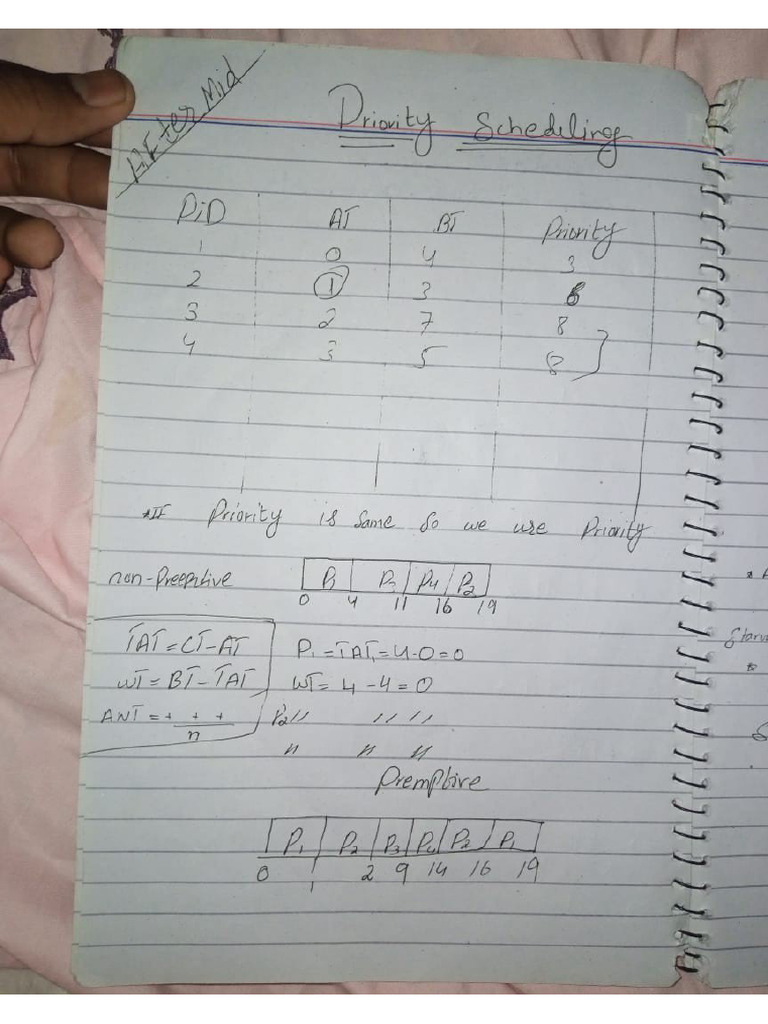 After Mid
Priority Schedeling
PiD AT BT Priority
1 0 4 3
2 1 3 6
3 2 7 8
4 3 5 8
*IF Priority is same so we use Priority
non-Preeptive P1 P3 P4 P2
0 4 11 16 19
TAT=CT-AT P1=TAT1=4-0=0
WT=BT-TAT WT=4-4=0
ANT=+ + + P2 " " "
n " " "
Premptive
P1 P2 P3 P4 P2 P1
0 1 2 9 14 16 19